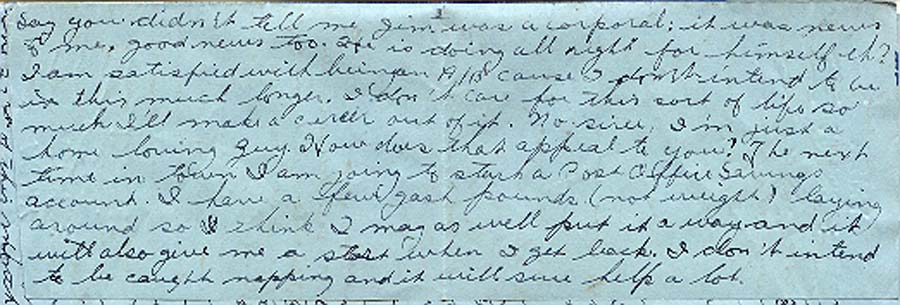 Say you didn't tell me Jim was a corporal; it was news
to me, good news too. He is doing all right for himself eh?
I am satisfied with being an A/B cause I don't intend to be
in this much longer. I don't care for this sort of life so
much I'll make a career out of it. No siree, I'm just a
home loving guy. How does that appeal to you? The next
time in town I am going to start a Post Office Savings
account. I have a few pounds (not weight) laying
around so I think I may as well put it away and it
will also give me a start when I get back. I don't intend
to be caught napping and it will sure help a lot.